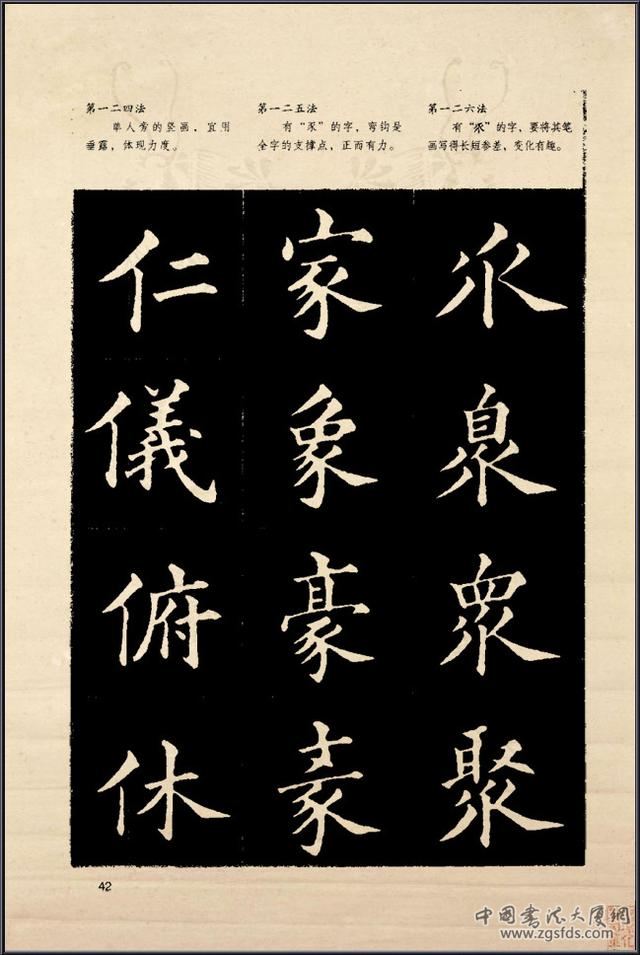 第一二四法
单人旁的竖画，宜用
垂露，体现力度。
第一二五法
有“豕”的字，弯钩是
全字的支撑点，正而有力。
第一二六法
有“乑”的字，要将其笔
画写得长短参差，变化有趣。
仁 家 乑
儀 象 臮
俯 豪 眾
休 聚
42
中国书法大厦網
www.zgsfds.com